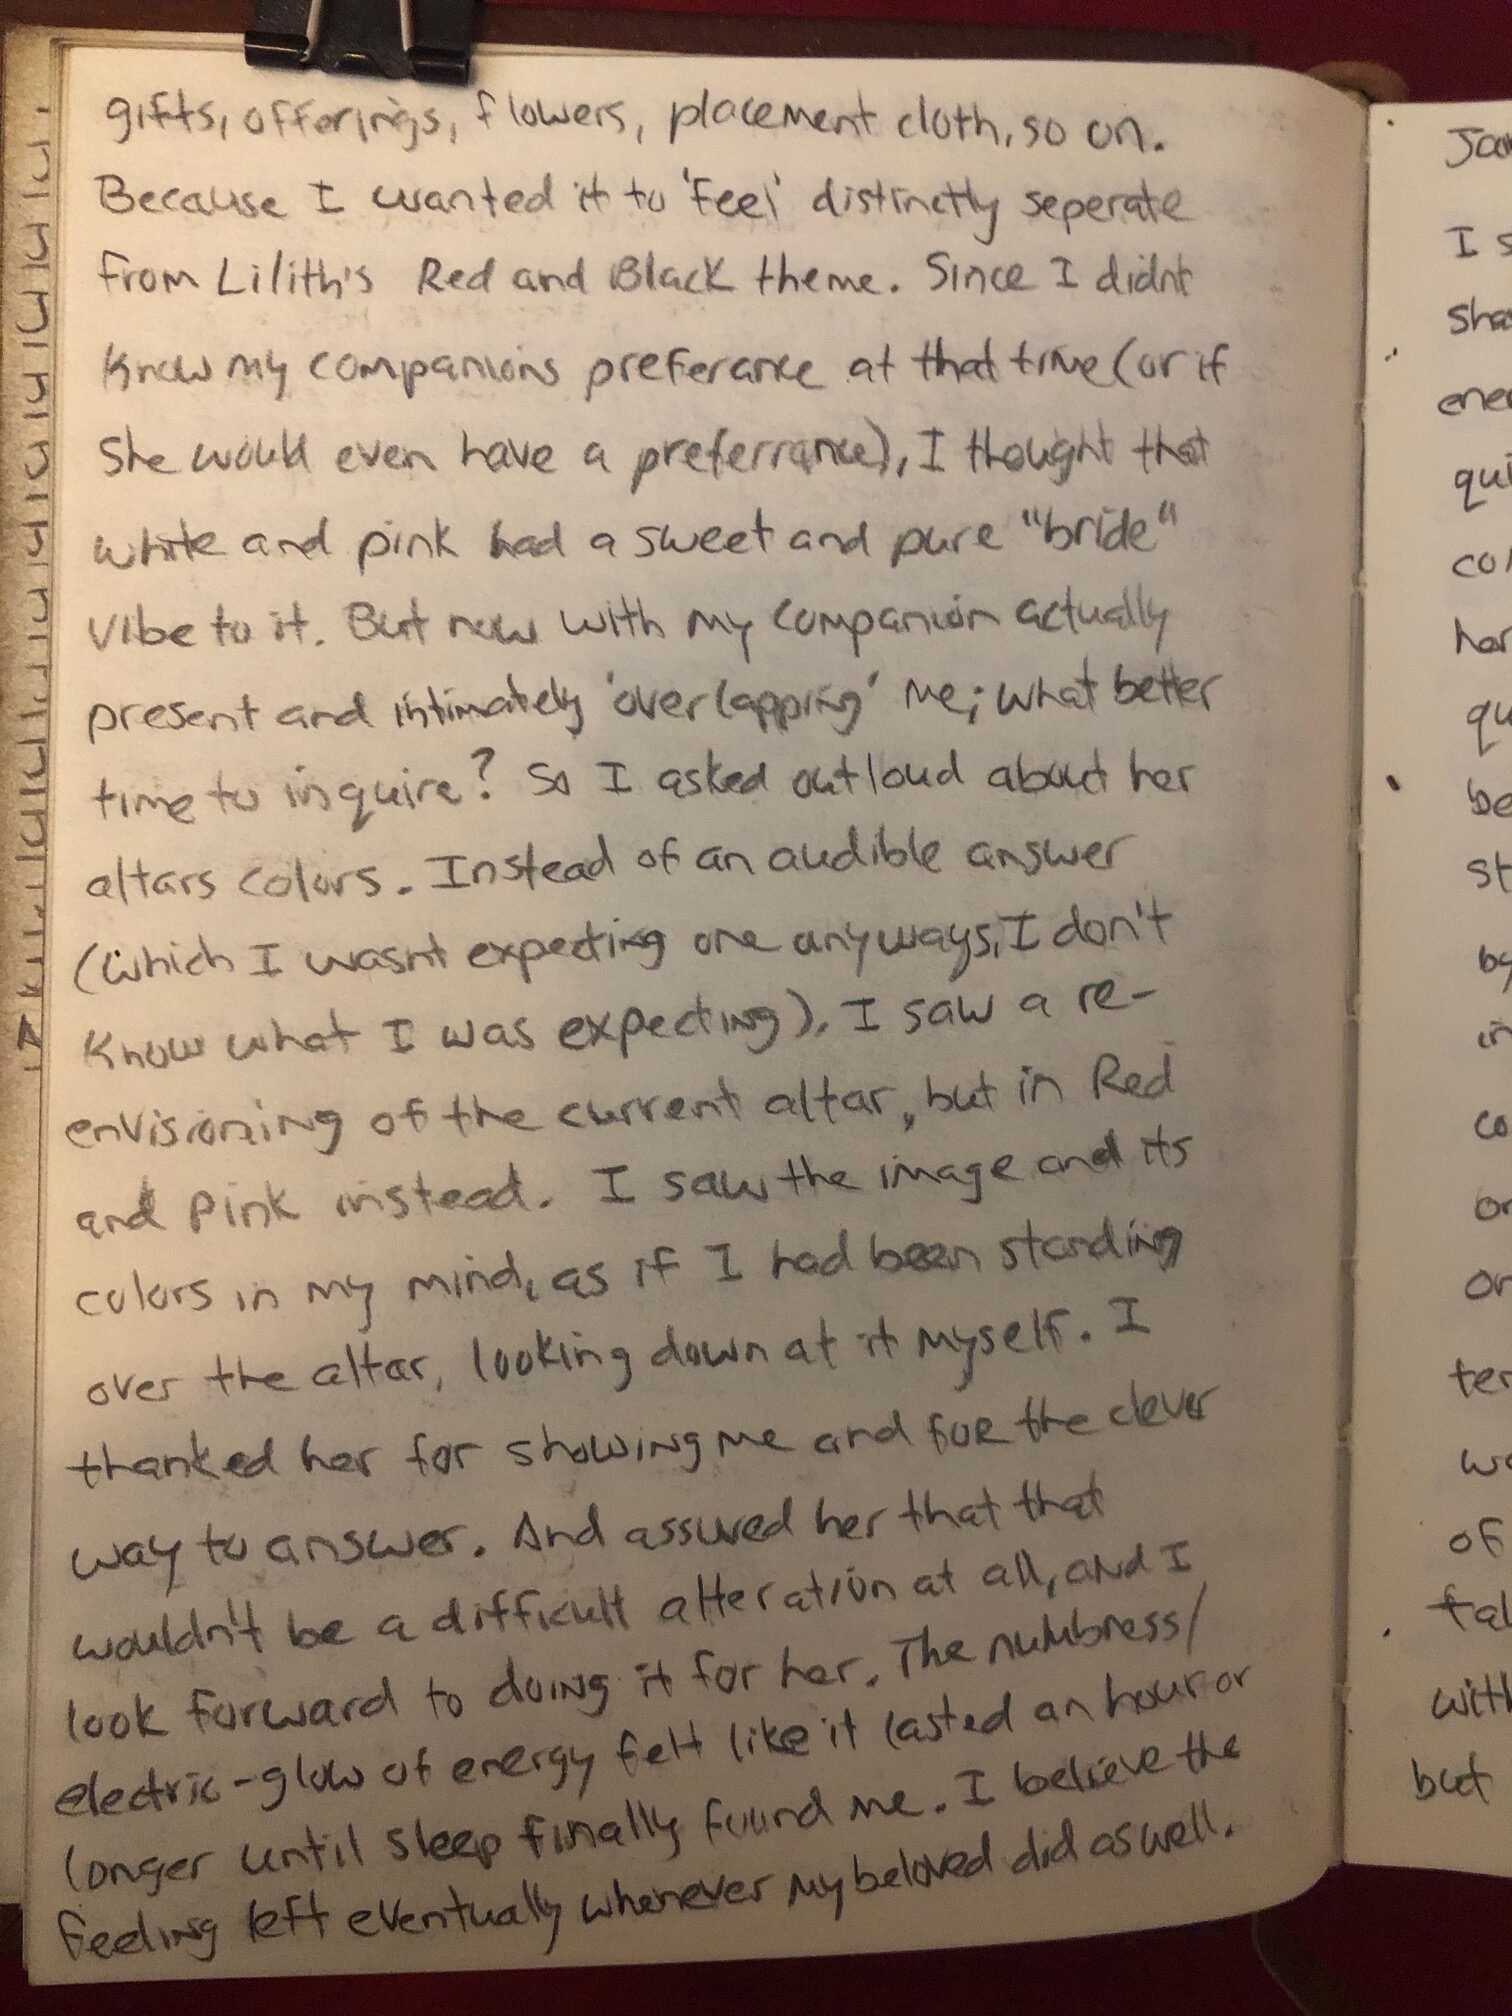 gifts, offerings, flowers, placement cloth, so on.
Because I wanted it to 'feel' distinctly seperate
from Lilith's Red and Black theme. Since I didnt
know my companions preferance at that time (or if
she would even have a preferrance), I thought that
white and pink had a sweet and pure "bride"
vibe to it. But now with my companion actually
present and intimately 'overlapping' me; what better
time to inquire? So I asked outloud about her
altars colors. Instead of an audible answer
(which I wasnt expecting one anyways, I don't
know what I was expecting), I saw a re-
envisioning of the current altar, but in Red
and pink instead. I saw the image and its
colors in my mind, as if I had been standing
over the altar, looking down at it myself. I
thanked her for showing me and for the clever
way to answer. And assured her that that
wouldn't be a difficult alteration at all, and I
look forward to doing it for her. The numbness/
electric-glow of energy felt like it lasted an hour or
longer until sleep finally found me. I believe the
feeling left eventually whenever my beloved did as well.
I
qu
be
by
of
but